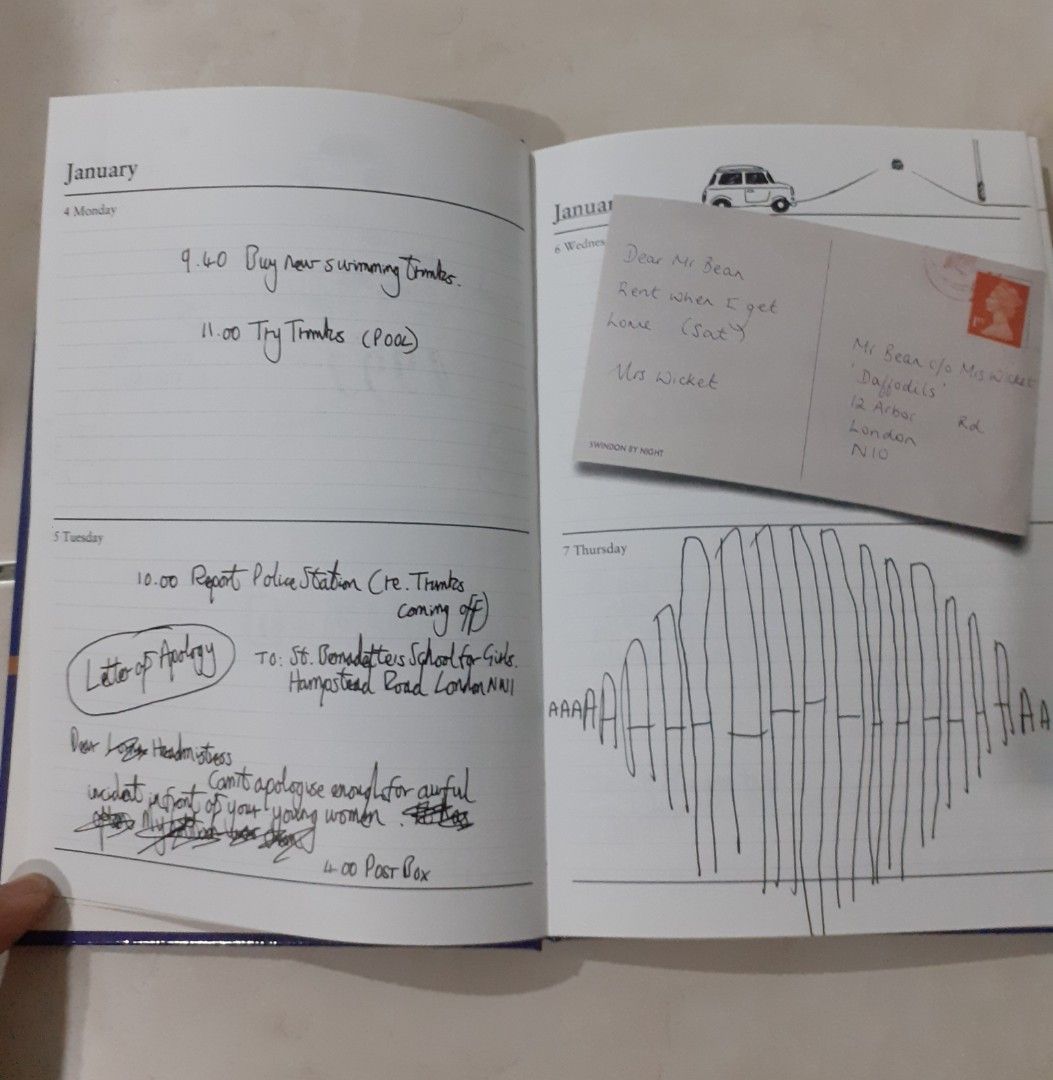 January
4 Monday
9.40 Buy new swimming trunks.
11.00 Try Trunks (POOL)
5 Tuesday
10.00 Report Police Station (re. Trunks
coming off)
Letter of Apology
TO: St. Bernadetters School for Girls.
Hampstead Road London NW1
Dear Headmistress
Can't apologise enough for awful
incident in front of your young women.
4.00 POST BOX
Januar
6 Wednes
Dear Mr Bean
Rent when I get
home (Sat)
Mrs Wicket
SWINDON BY NIGHT
1ST
Mr Bean c/o Mrs Wicket
'Daffodils'
12 Arbor Rd
London
N10
7 Thursday
AAAAAAAAAAAAAAAAAAAA